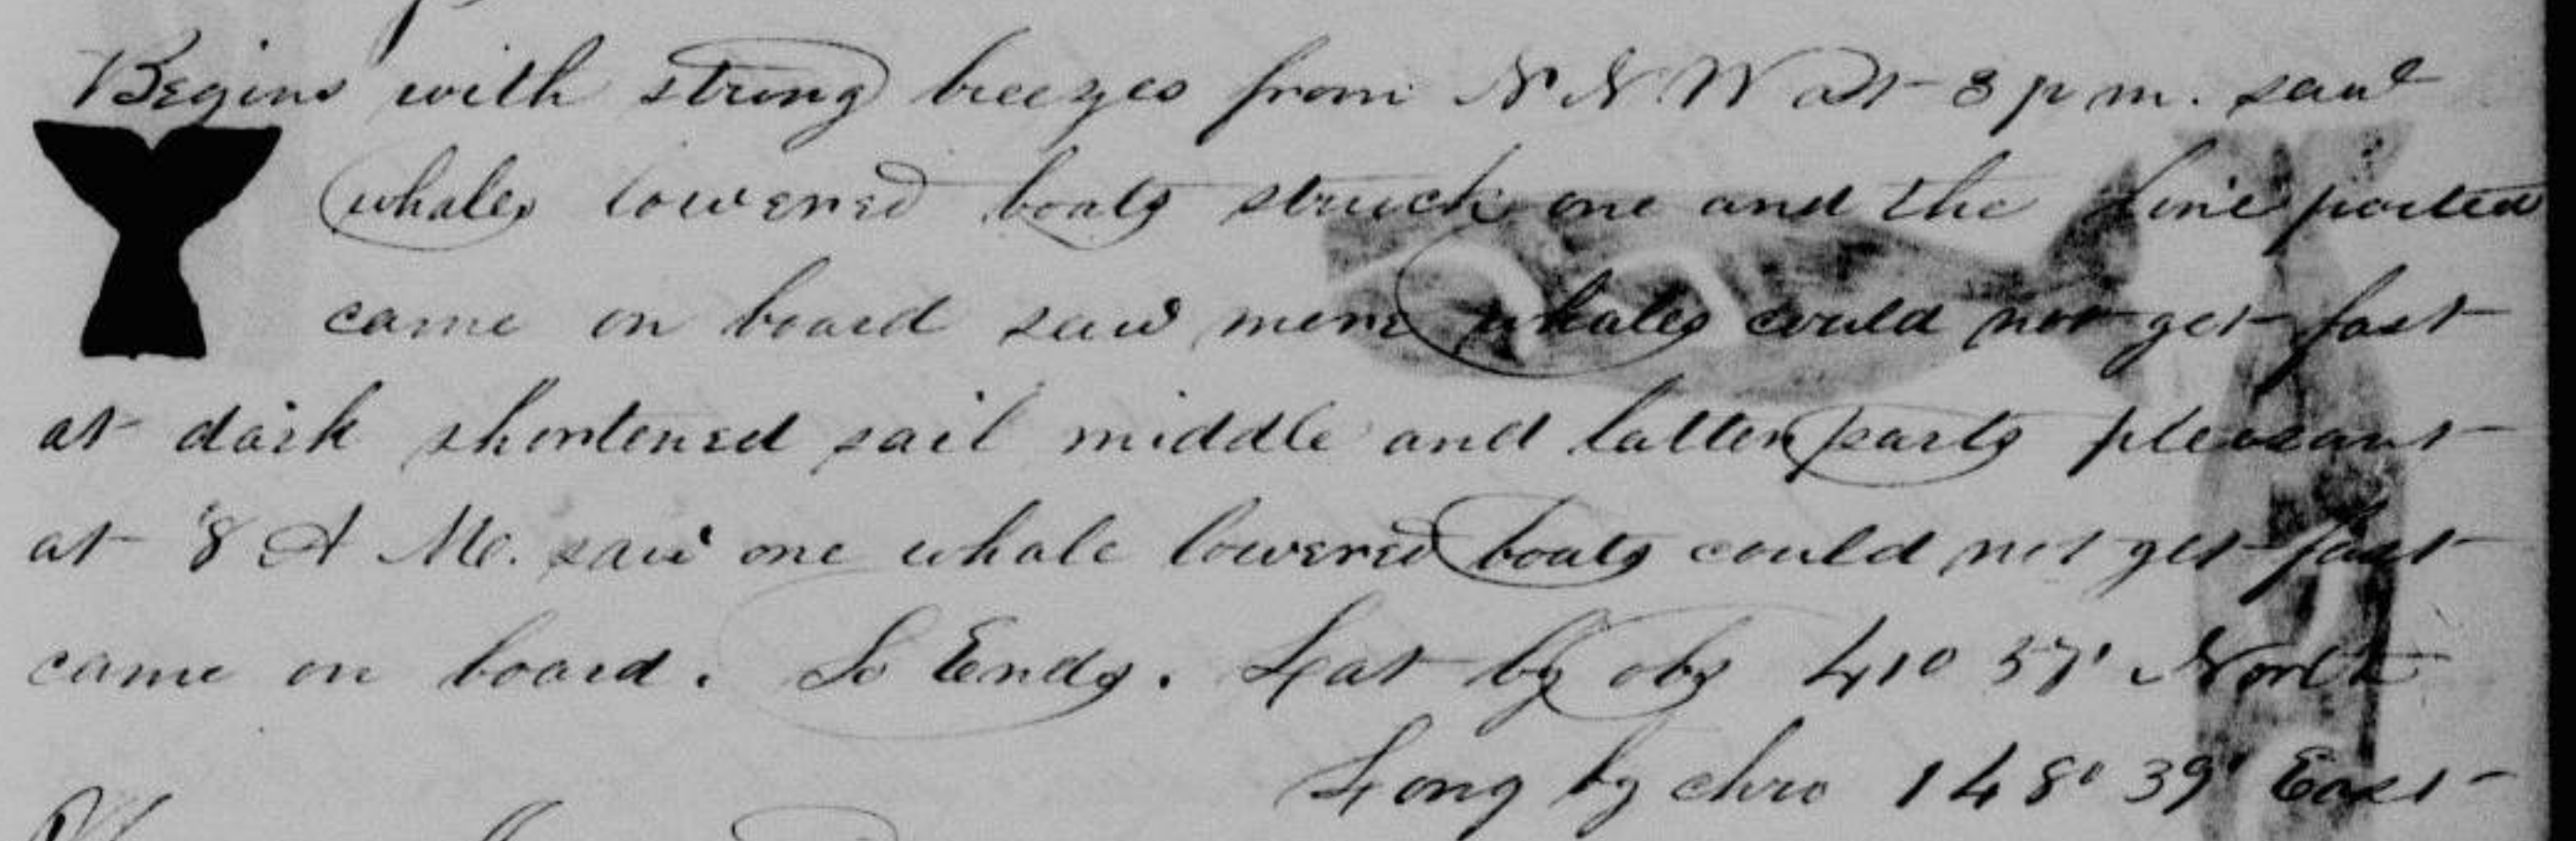 Begins with strong breezes from N N W at 3 p m. saw
whales lowered boats struck one and the Line parted
came on board saw more whales could not get fast
at dark shortened sail middle and latter parts pleasant
at 8 A M. saw one whale lowered boats could not get fast
came on board. So Ends. Lat by obs 41° 57' North
Long by chro 148° 39' East